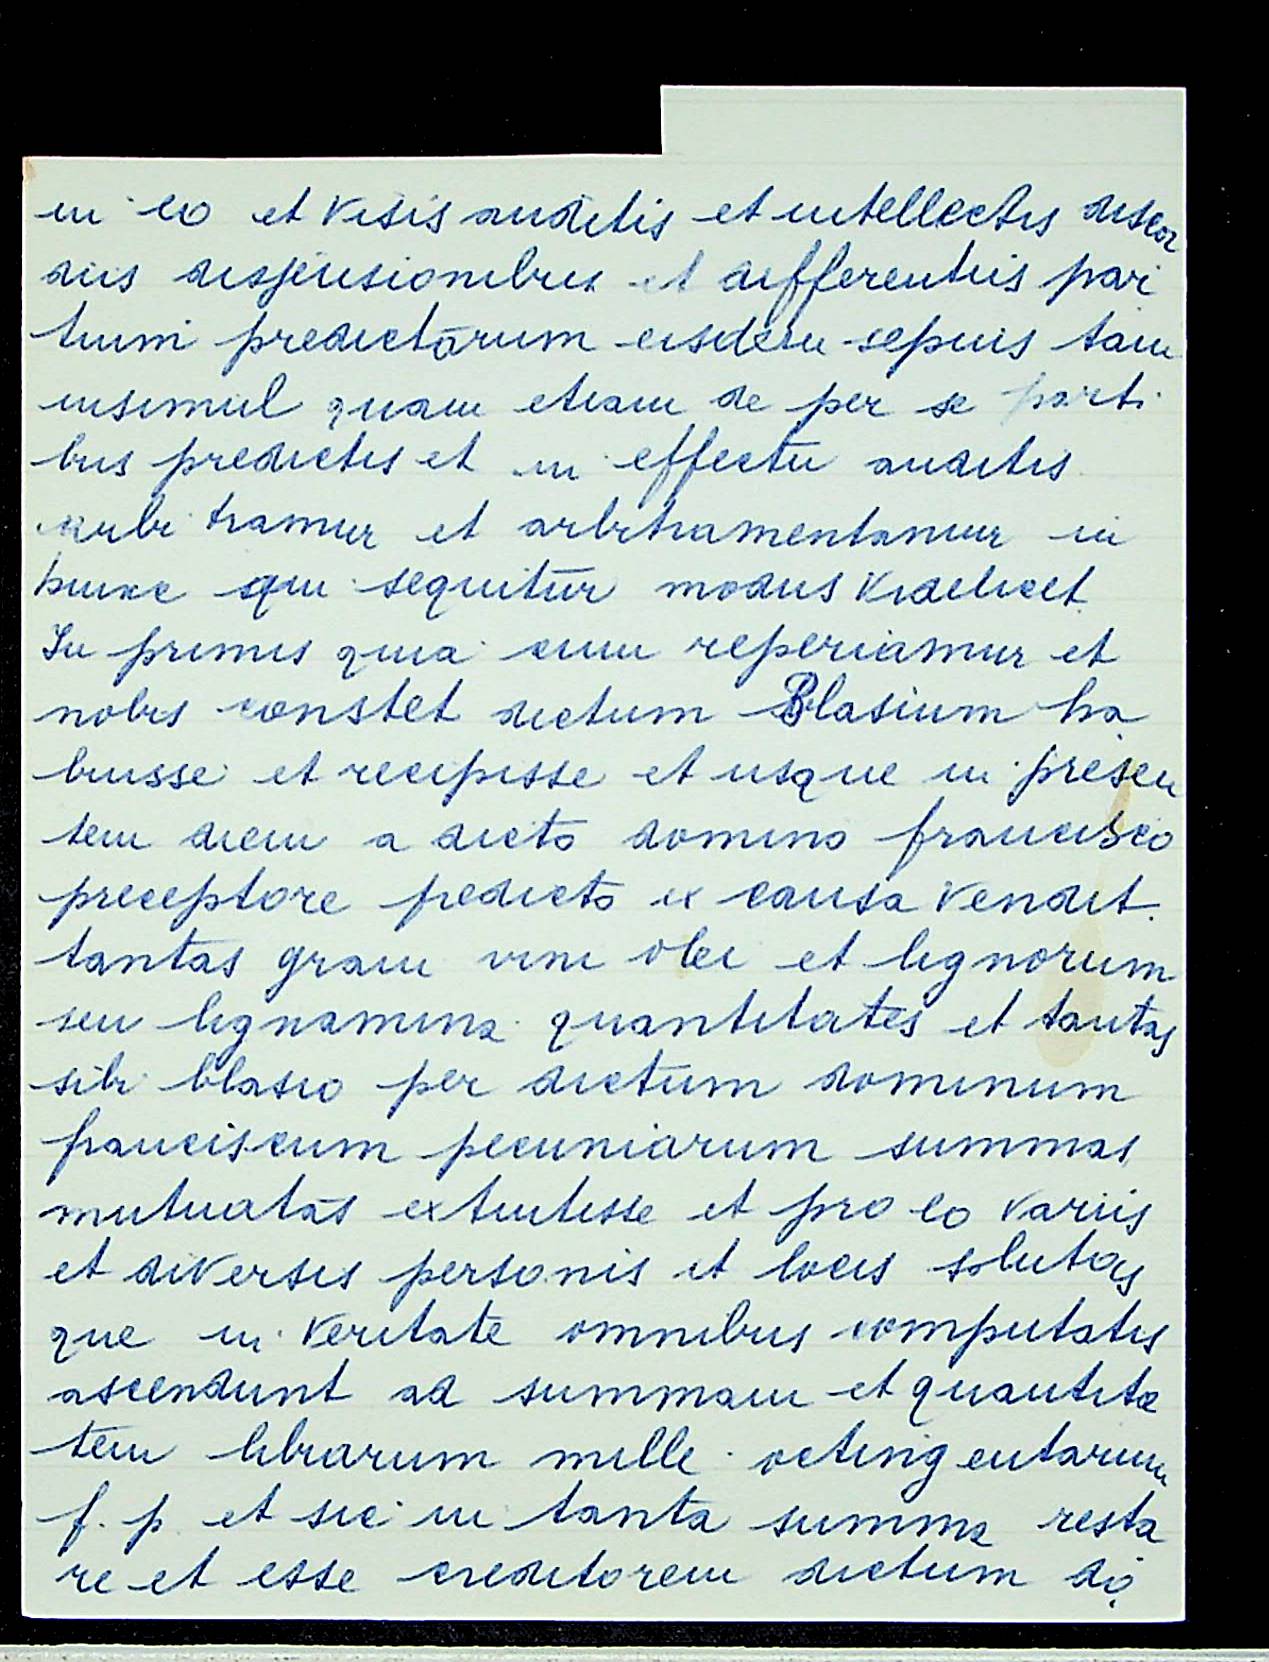 in eo et visis auditis et intellectis discor
diis dispensionibus et differentiis par
tium predictarum eisdem sepuis tam
insimul quam etiam de per se parti
bus predictis et in effectu auditis
arbi tramur et arbitramentamur in
hunc qui sequitur modus videlicet
In primis quia cum reperiamur et
nobis constet dictum Blasium ha
buisse et recepisse et usque in presen
tem diem a dicto domino francisco
preceptore pedicto ex causa vendit.
tantas gram vini olei et lignorum
seu lignamina quantitates et tantas
sibi blasio per dictum dominum
franciscum pecuniarum summas
mutuatas extitisse et pro eo variis
et diversis personis et locis solutas
que in veritate omnibus computatis
ascendunt ad summam et quantita
tem librarum mille octing entarum
f. p. et sic in tanta summa resta
re et esse creditorem dictum do